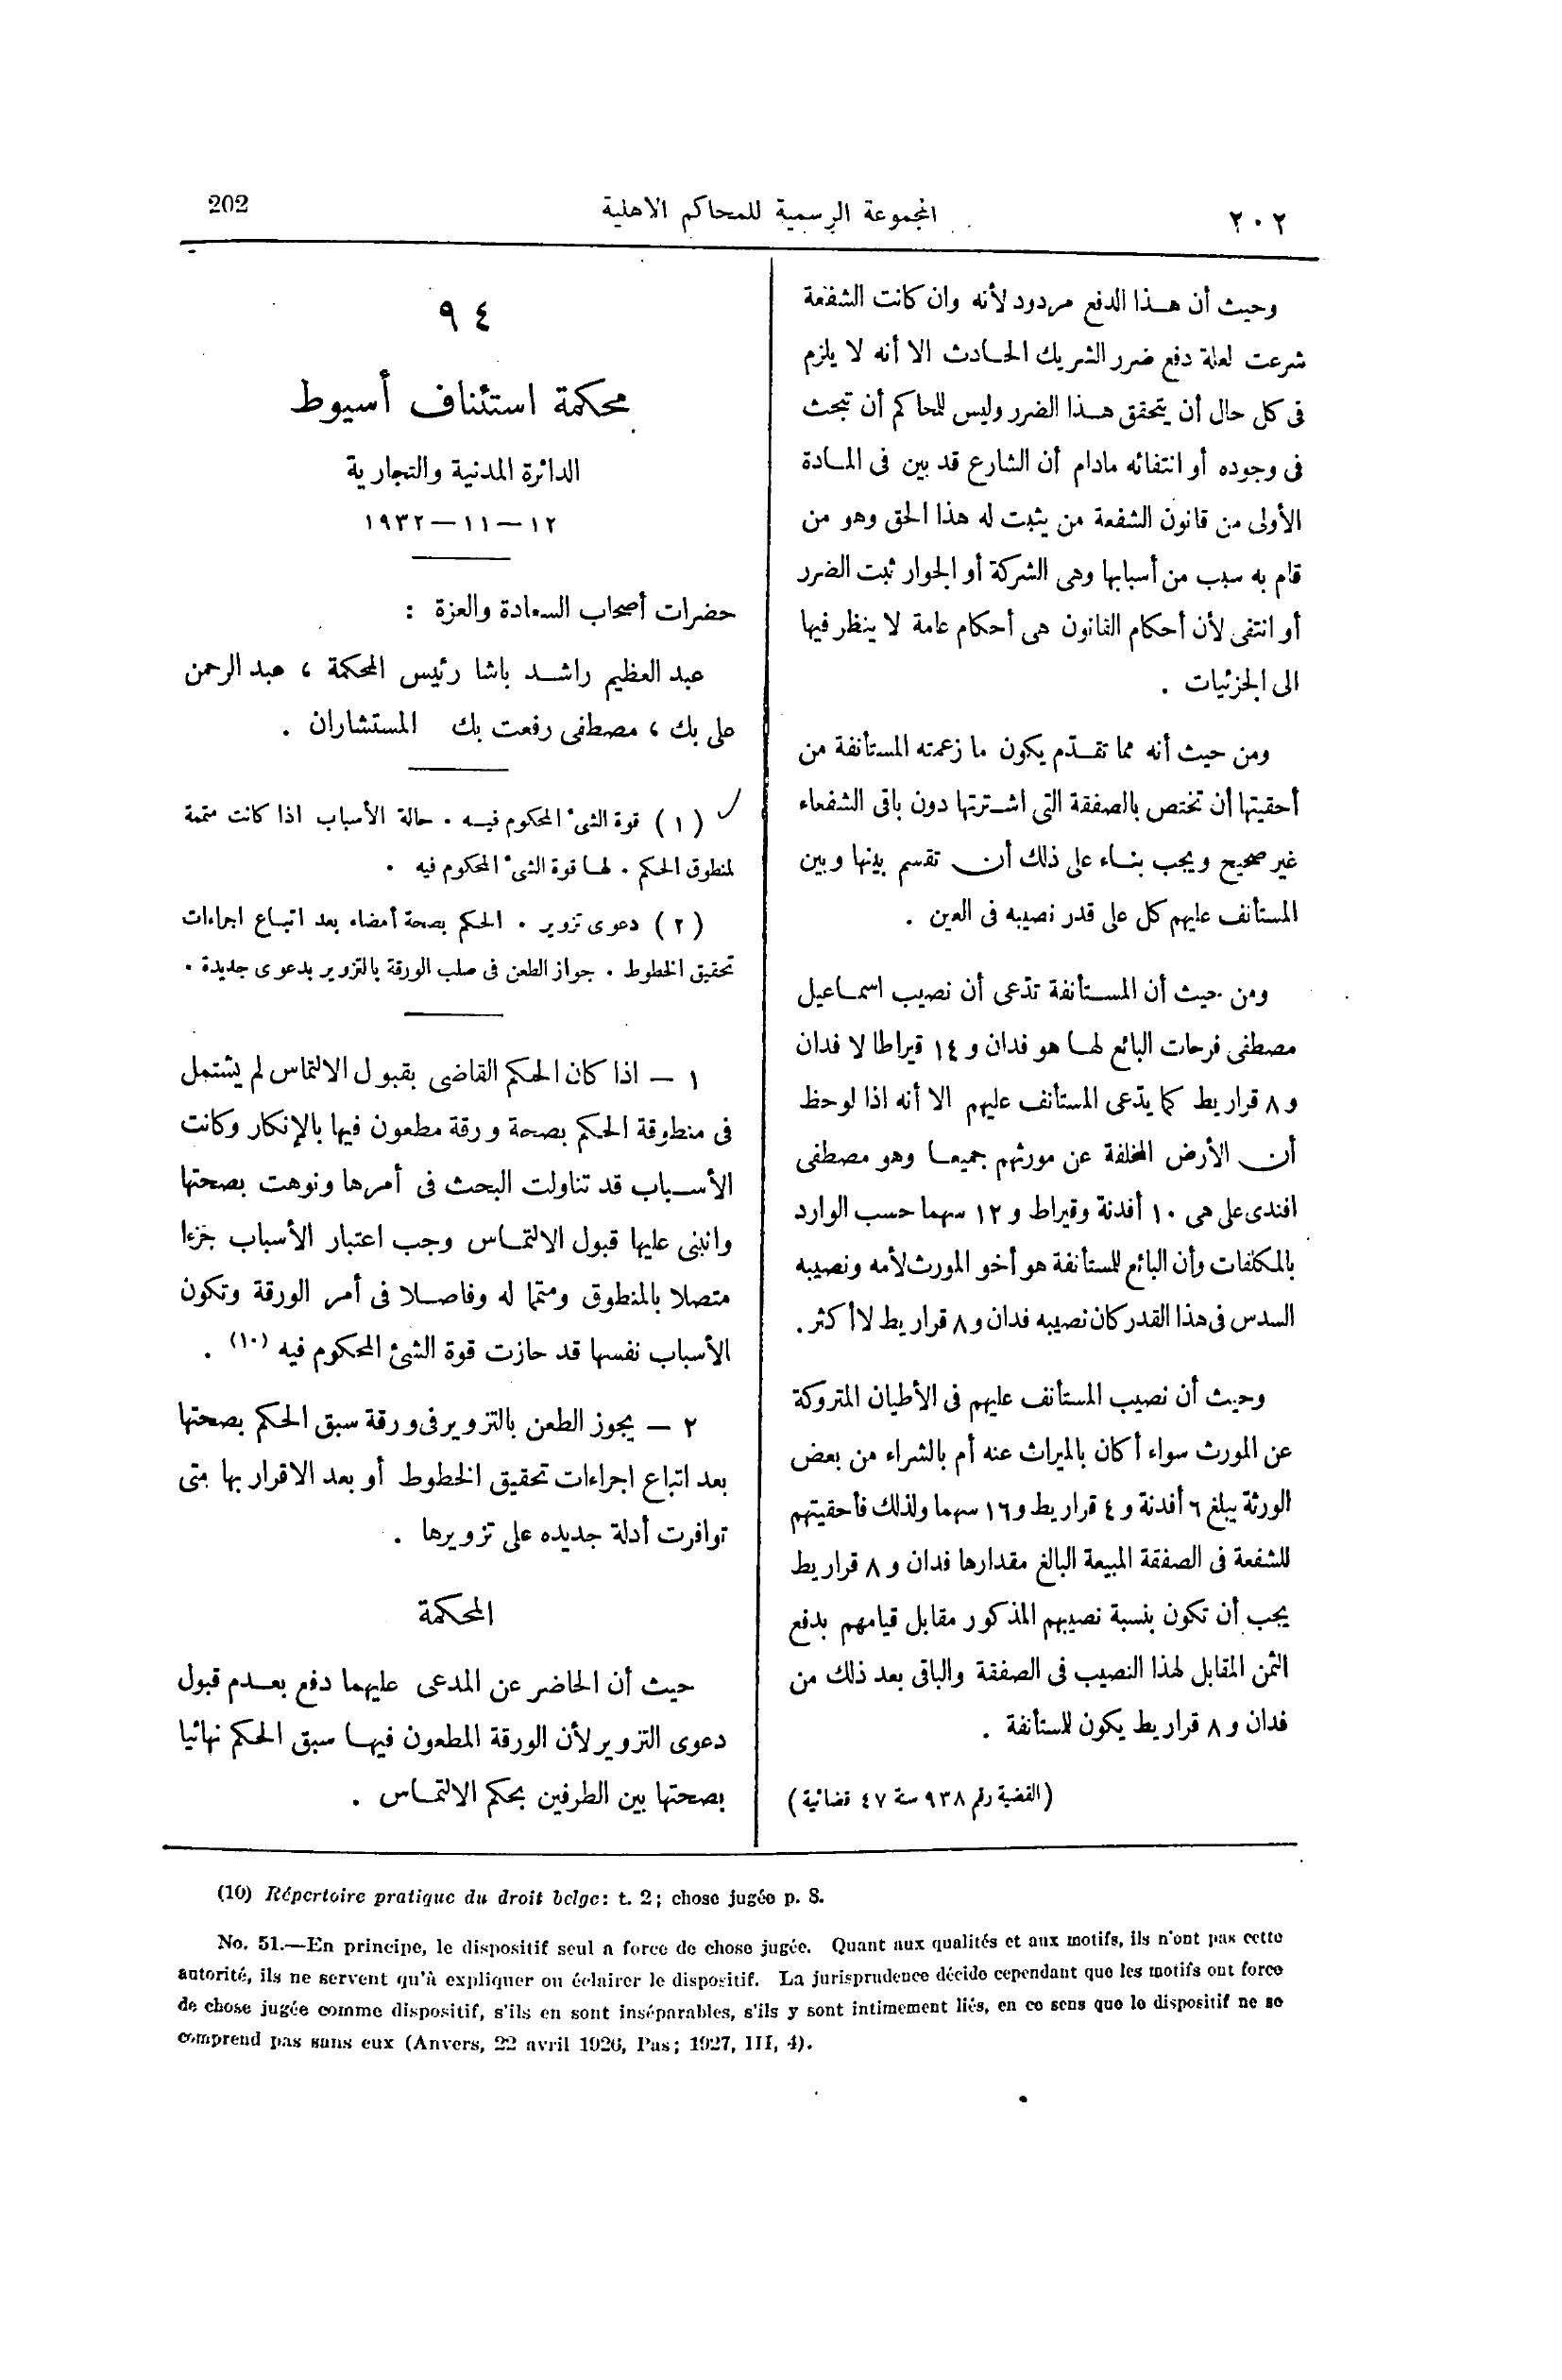 ٢٠٢
المجموعة الرسمية للمحاكم الأهلية
202
وحيث أن هذا الدفع مردود لأنه وان كانت الشفعة
شرعت لعلة دفع ضرر الشريك الحادث الا أنه لا يلزم
فى كل حال أن يتحقق هذا الضرر وليس للحاكم أن تبحث
فى وجوده أو انتفائه مادام أن الشارع قد بين فى المادة
الأولى من قانون الشفعة من يثبت له هذا الحق وهو من
قام به سبب من أسبابها وهى الشركة أو الجوار ثبت الضرر
أو انتفى لأن أحكام القانون هى أحكام عامة لا ينظر فيها
الى الجزئيات .
ومن حيث أنه مما تقدّم يكون ما زعمته المستأنفة من
أحقيتها أن تختص بالصفقة التى اشترتها دون باقى الشفعاء
غير صحيح ويجب بناء على ذلك أن تقسم بينها وبين
المستأنف عليهم كل على قدر نصيبه فى العين .
ومن حيث أن المستأنفة تدّعى أن نصيب اسماعيل
مصطفى فرحات البائع لها هو فدان و ١٤ قيراطا لا فدان
و ٨ قراريط كما يدّعى المستأنف عليهم الا أنه اذا لوحظ
أن الأرض المخلفة عن مورثهم جميعا وهو مصطفى
افندى على هى ١٠ أفدنة وقيراط و ١٢ سهما حسب الوارد
بالمكلفات وأن البائع للستأنفة هو أخو المورث لأمه ونصيبه
السدس فى هذا القدر كان نصيبه فدان و ٨ قراريط لا أكثر .
وحيث أن نصيب المستأنف عليهم فى الأطيان المتروكة
عن المورث سواء أكان بالميراث عنه أم بالشراء من بعض
الورثة يبلغ ٦ أفدنة و ٤ قراريط و ١٦ سهما ولذلك فأحقيتهم
للشفعة فى الصفقة المبيعة البالغ مقدارها فدان و ٨ قراريط
يجب أن تكون بنسبة نصيبهم المذكور مقابل قيامهم بدفع
الثمن المقابل لهذا النصيب فى الصفقة والباقى بعد ذلك من
فدان و ٨ قراريط يكون للستأنفة .
(القضية رقم ٩٣٨ سنة ٤٧ قضائية)
٩٤
محكمة استئناف أسيوط
الدائرة المدنية والتجارية
١٢ — ١١ — ١٩٣٢
حضرات أصحاب السعادة والعزة :
عبد العظيم راشد باشا رئيس المحكمة ، عبد الرحمن
على بك ، مصطفى رفعت بك المستشاران .
(١) قوة الشىء المحكوم فيه . حالة الأسباب اذا كانت متممة
لمنطوق الحكم . لها قوة الشىء المحكوم فيه .
(٢) دعوى تزوير . الحكم بصحة أمضاء بعد اتباع اجراءات
تحقيق الخطوط . جواز الطعن فى صلب الورقة بالتزوير بدعوى جديدة .
١ — اذا كان الحكم القاضى بقبول الالتماس لم يشتمل
فى منطوقة الحكم بصحة ورقة مطعون فيها بالإنكار وكانت
الأسباب قد تناولت البحث فى أمرها ونوهت بصحتها
وانبنى عليها قبول الالتماس وجب اعتبار الأسباب جزءا
متصلا بالمنطوق ومتمما له وفاصلا فى أمر الورقة وتكون
الأسباب نفسها قد حازت قوة الشئ المحكوم فيه (١٠) .
٢ — يجوز الطعن بالتزوير فى ورقة سبق الحكم بصحتها
بعد اتباع اجراءات تحقيق الخطوط أو بعد الاقرار بها متى
توافرت أدلة جديده على تزويرها .
المحكمة
حيث أن الحاضر عن المدعى عليهما دفع بعدم قبول
دعوى التزوير لأن الورقة المطعون فيها سبق الحكم نهائيا
بصحتها بين الطرفين بحكم الالتماس .
(10) Répertoire pratique du droit belge: t. 2; chose jugée p. 8.
No. 51.—En principe, le dispositif seul a force de chose jugée. Quant aux qualités et aux motifs, ils n'ont pas cette
autorité, ils ne servent qu'à expliquer ou éclairer le dispositif. La jurisprudence décide cependant que les motifs ont force
de chose jugée comme dispositif, s'ils en sont inséparables, s'ils y sont intimement liés, en ce sens que le dispositif ne se
comprend pas sans eux (Anvers, 22 avril 1926, Pas; 1927, III, 4).